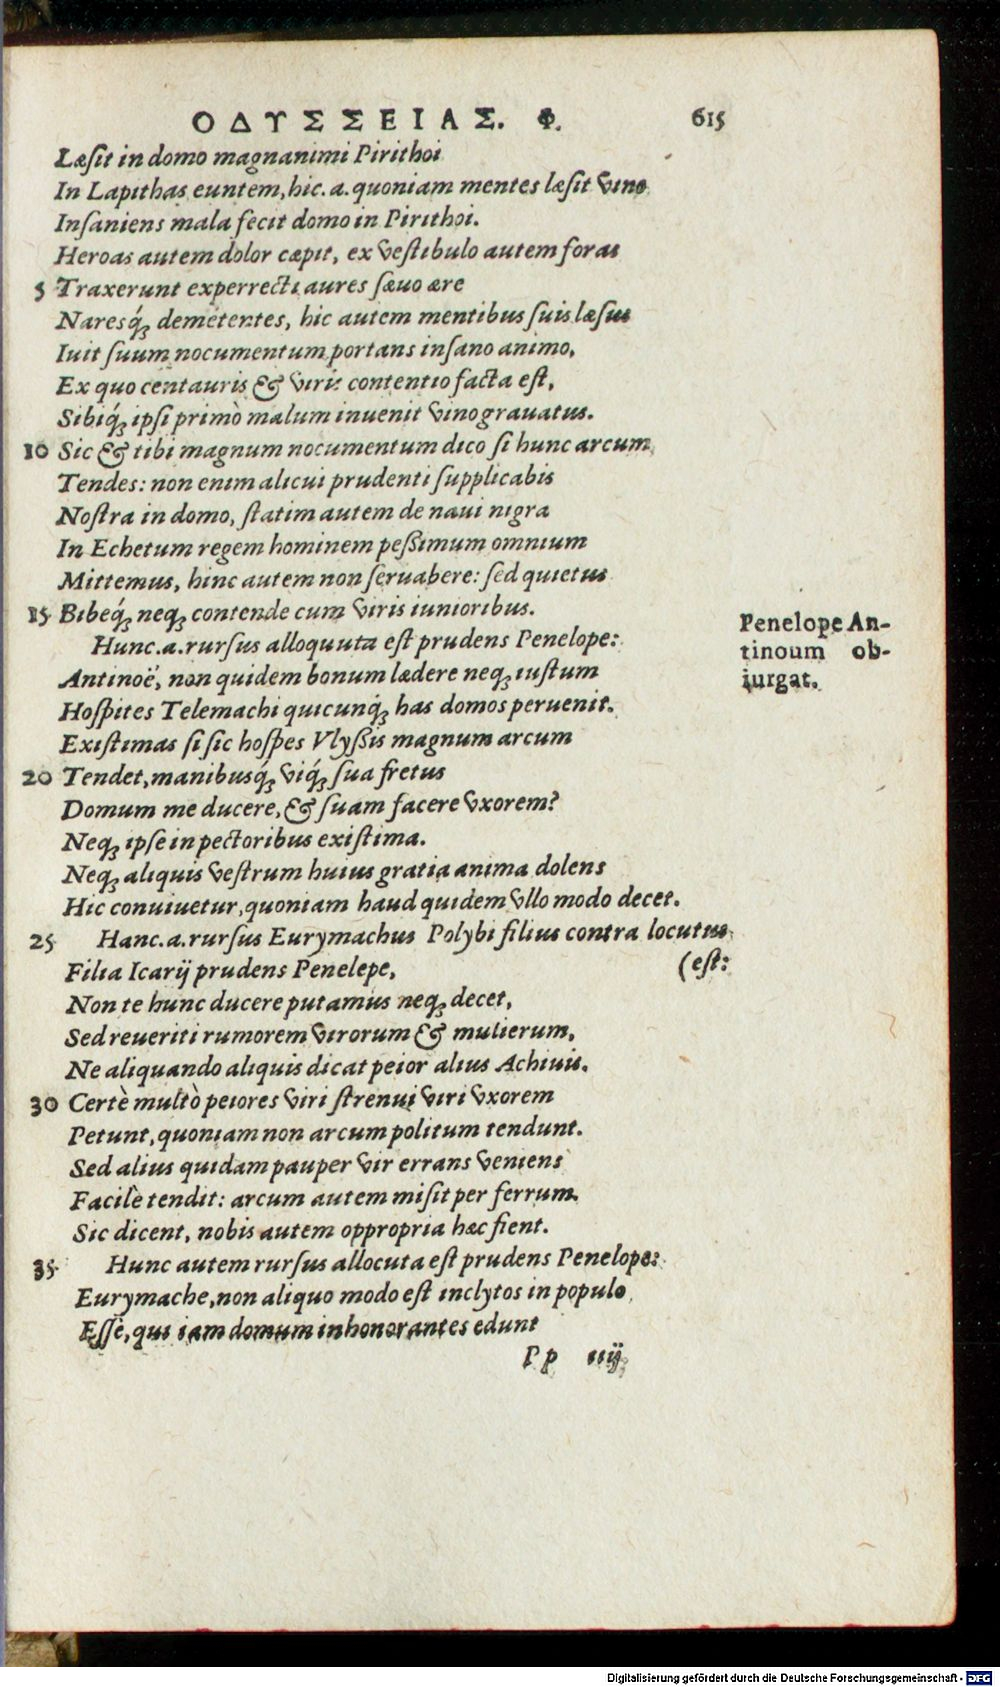 ΟΔΥΣΣΕΙΑΣ. Φ. 615
Læſit in domo magnanimi Pirithoi
In Lapithas euntem, hic. a. quoniam mentes læſit vino
Inſaniens mala fecit domo in Pirithoi.
Heroas autem dolor cæpit, ex veſtibulo autem foras
5 Traxerunt experrecti aures ſæuo ære
Naresq́ꝫ demetentes, hic autem mentibus ſuis læſus
Iuit ſuum nocumentum portans inſano animo,
Ex quo centauris & viris contentio facta eſt,
Sibiq́ꝫ ipſi primò malum inuenit vino grauatus.
10 Sic & tibi magnum nocumentum dico ſi hunc arcum
Tendes: non enim alicui prudenti ſupplicabis
Noſtra in domo, ſtatim autem de naui nigra
In Echetum regem hominem peßimum omnium
Mittemus, hinc autem non ſeruabere: ſed quietus
15 Bibeq́ꝫ neqꝫ contende cum viris iunioribus.
Hunc. a. rurſus alloquuta eſt prudens Penelope:
Antinoë, non quidem bonum lædere neqꝫ iuſtum
Hoſpites Telemachi quicunq́ꝫ has domos peruenit.
Existimas ſi ſic hoſpes Vlyßis magnum arcum
20 Tendet, manibusq́ꝫ viq́ꝫ ſua fretus
Domum me ducere, & ſuam facere vxorem?
Neqꝫ ipſe in pectoribus exiſtima.
Neqꝫ aliquis veſtrum huius gratia anima dolens
Hic conuiuetur, quoniam haud quidem vllo modo decet.
25 Hanc. a. rurſus Eurymachus Polybi filius contra locutus
(eſt:
Filia Icarij prudens Penelepe,
Non te hunc ducere putamus neqꝫ decet,
Sed reueriti rumorem virorum & mulierum,
Ne aliquando aliquis dicat peior alius Achiuis.
30 Certè multò peiores viri ſtrenui viri vxorem
Petunt, quoniam non arcum politum tendunt.
Sed alius quidam pauper vir errans veniens
Facilè tendit: arcum autem miſit per ferrum.
Sic dicent, nobis autem oppropria hæc fient.
35 Hunc autem rurſus allocuta eſt prudens Penelope:
Eurymache, non aliquo modo eſt inclytos in populo
Eſſe, qui iam domum inhonorantes edunt
Pp iiij
Penelope An-
tinoum ob-
iurgat.
Digitalisierung gefördert durch die Deutsche Forschungsgemeinschaft - DFG